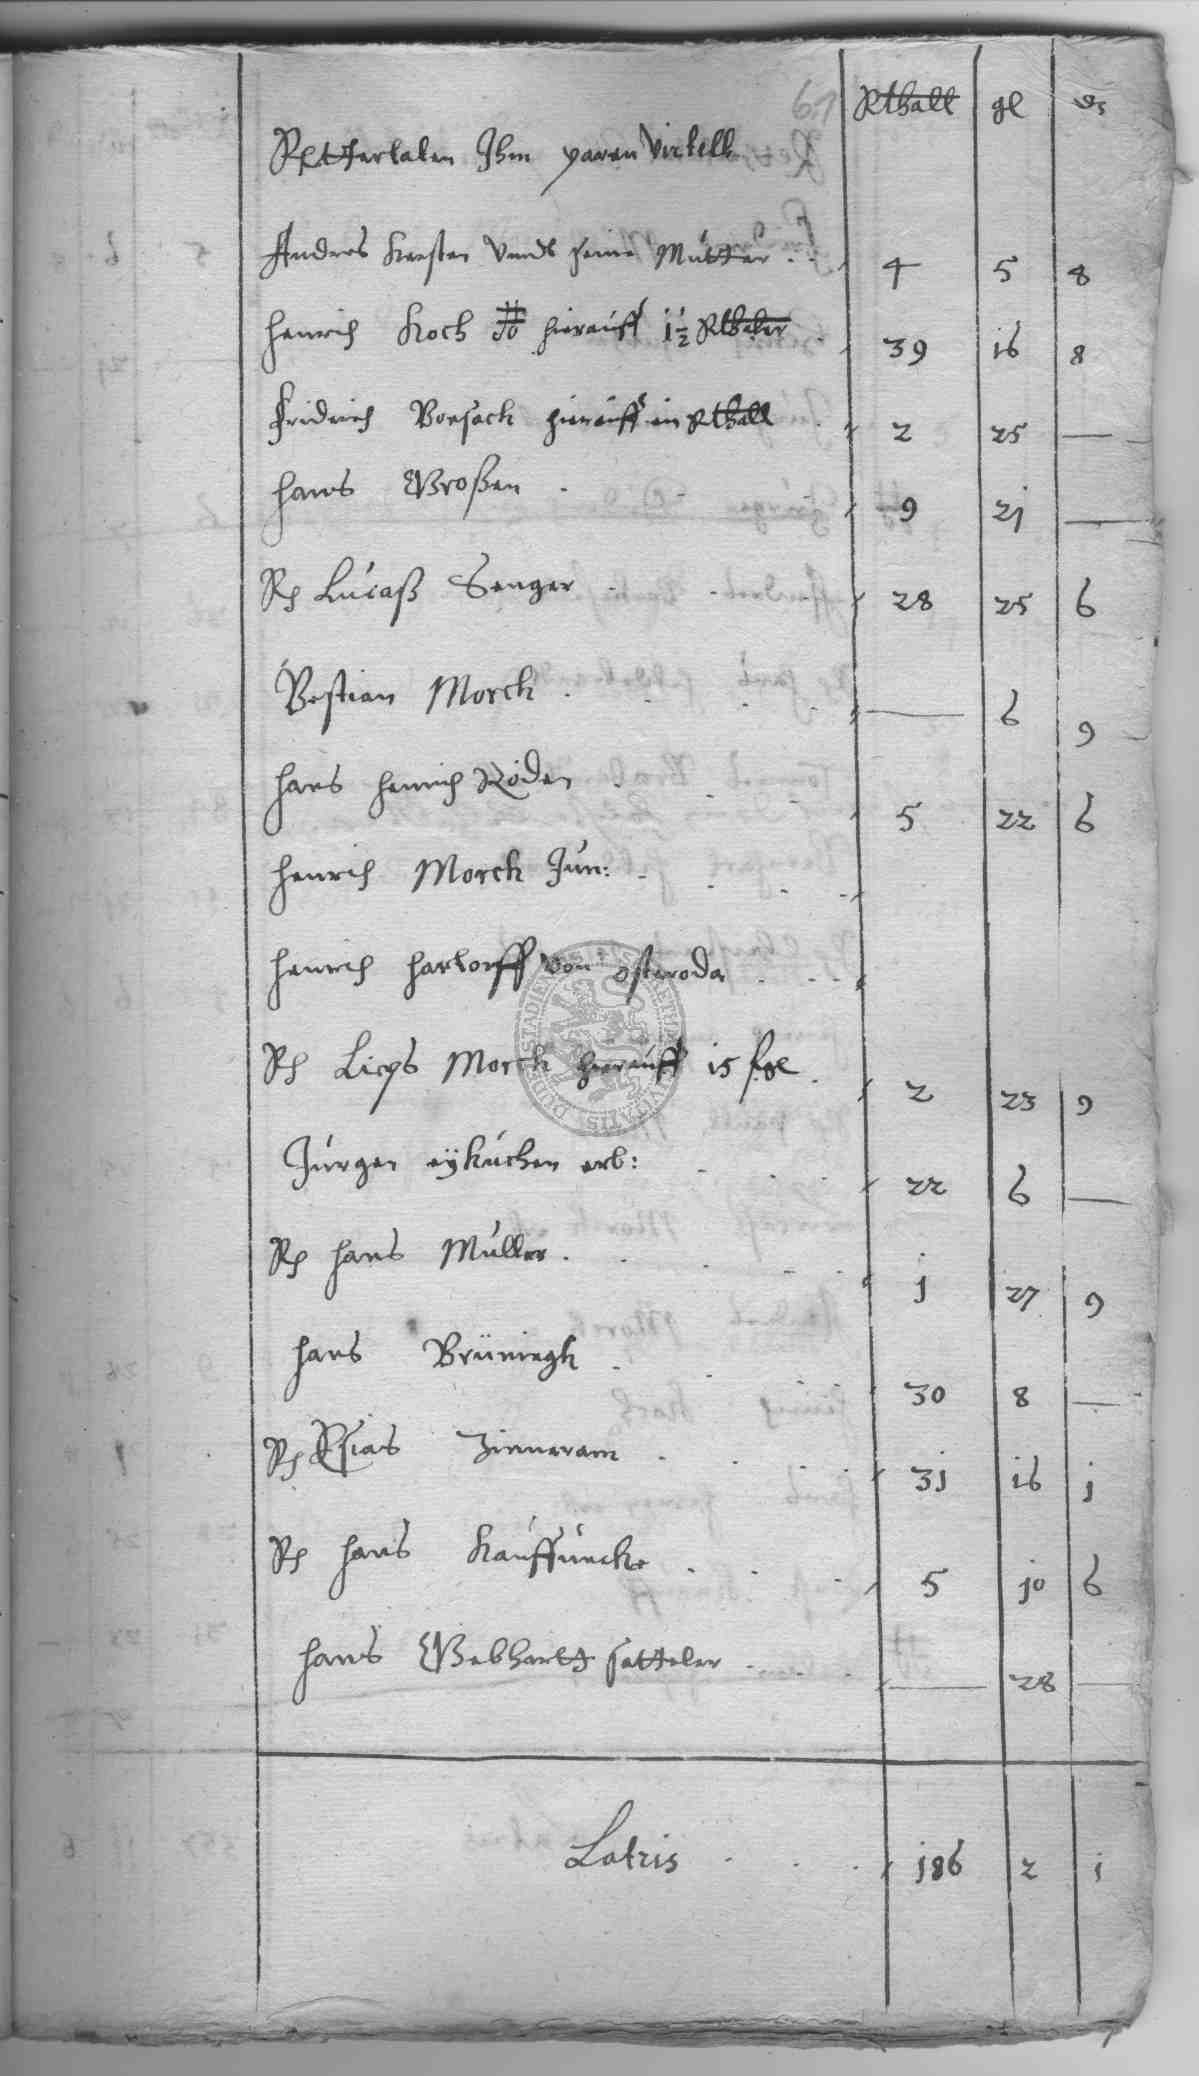 61
Rthall gl
Rettertaten Ihm paren Virtell
Andres Karsten Vnndt seine Mutter 4 5 8
Henrich Koch hierauff 1½ Rthaler 39 16 8
Fridrich Borsach hierauff ein Rthall 2 25 —
Hans Großen 9 21 —
Lucaß Senger 28 25 6
Bestian Morch — 6 9
Hans Henrich Röden 5 22 6
Henrich Morch Jun:
Henrich Hartorff von osteroda
Lips Morch hierauff 15 2 23 9
Jurgen eÿkuchen erb: 22 6 —
Hans Muller 1 27 9
Hans Brüningk 30 8 —
Esias Zinneram 31 16 1
Hans Kauffunche 5 10 6
Hans Gebhartt satteler — 28 —
Latris 186 2 1